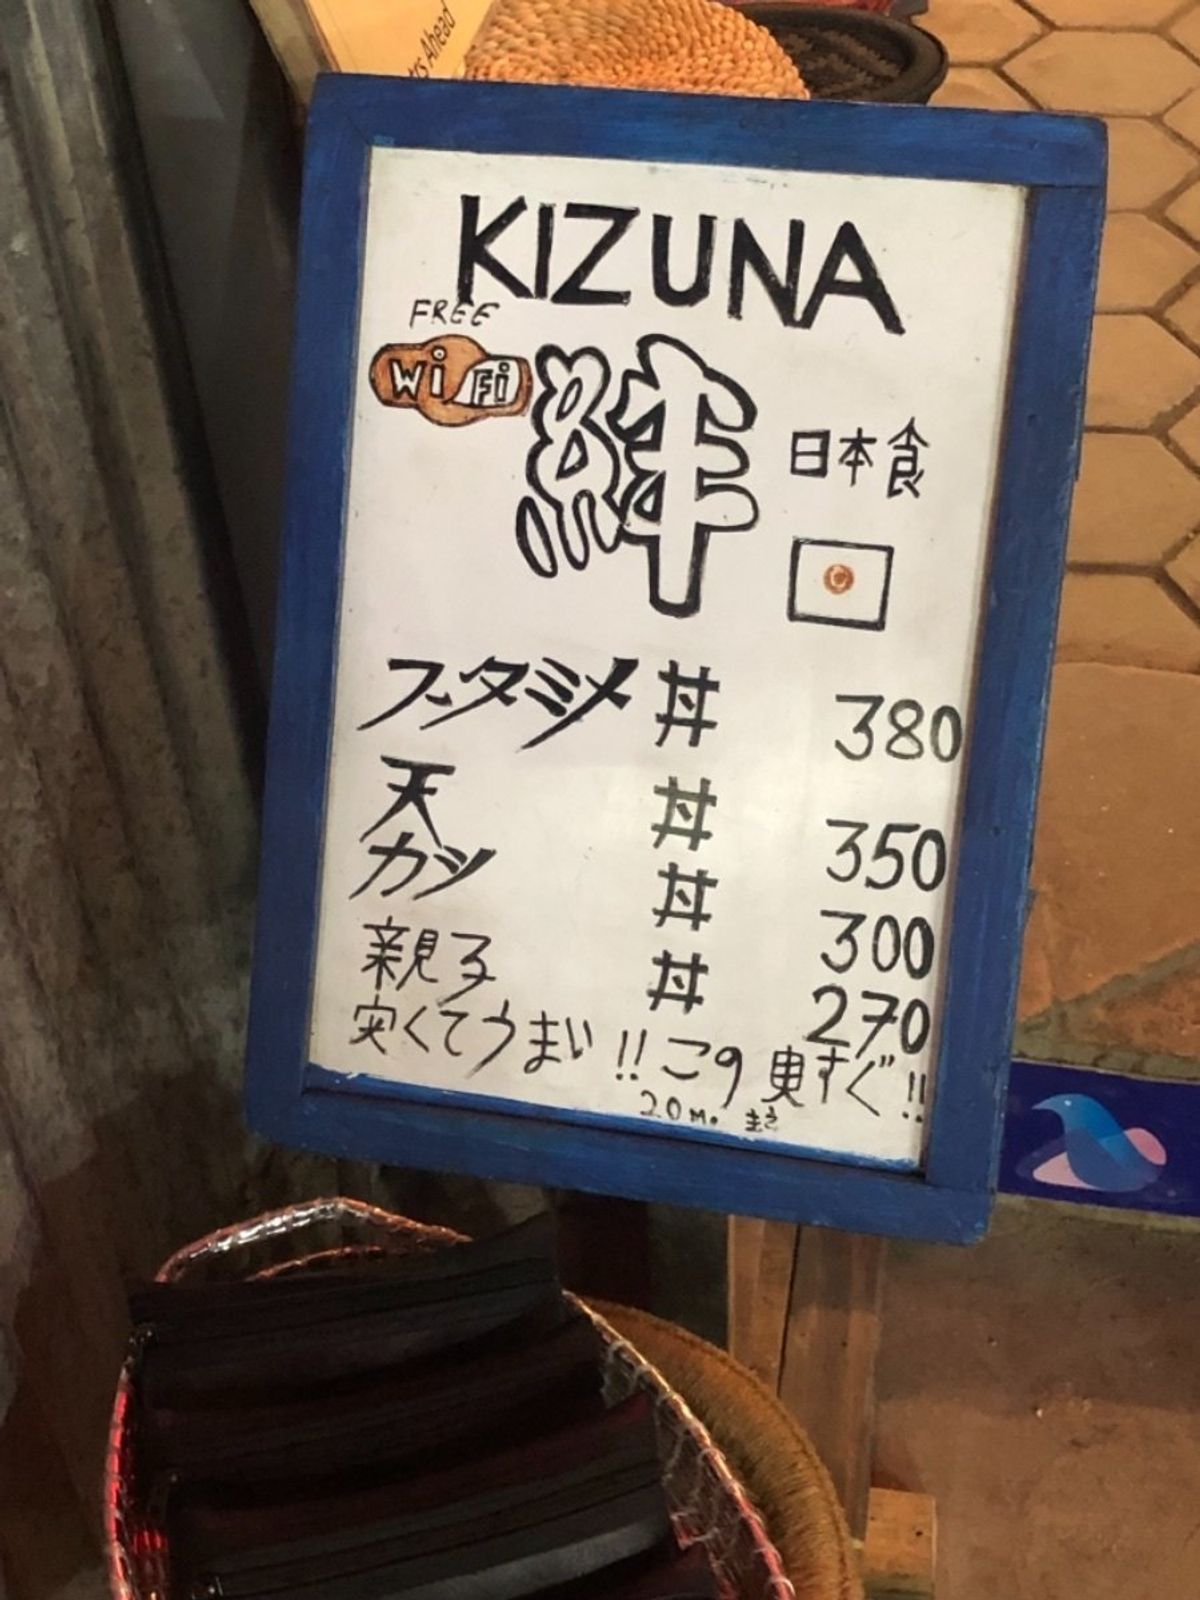 rs Ahead
KIZUNA
FREE
Wi Fi
絆 日本食
フータミメ 丼 380
天 丼 350
カツ 丼 300
親子 丼 270
安くてうまい!! この奥すぐ!!
20m.